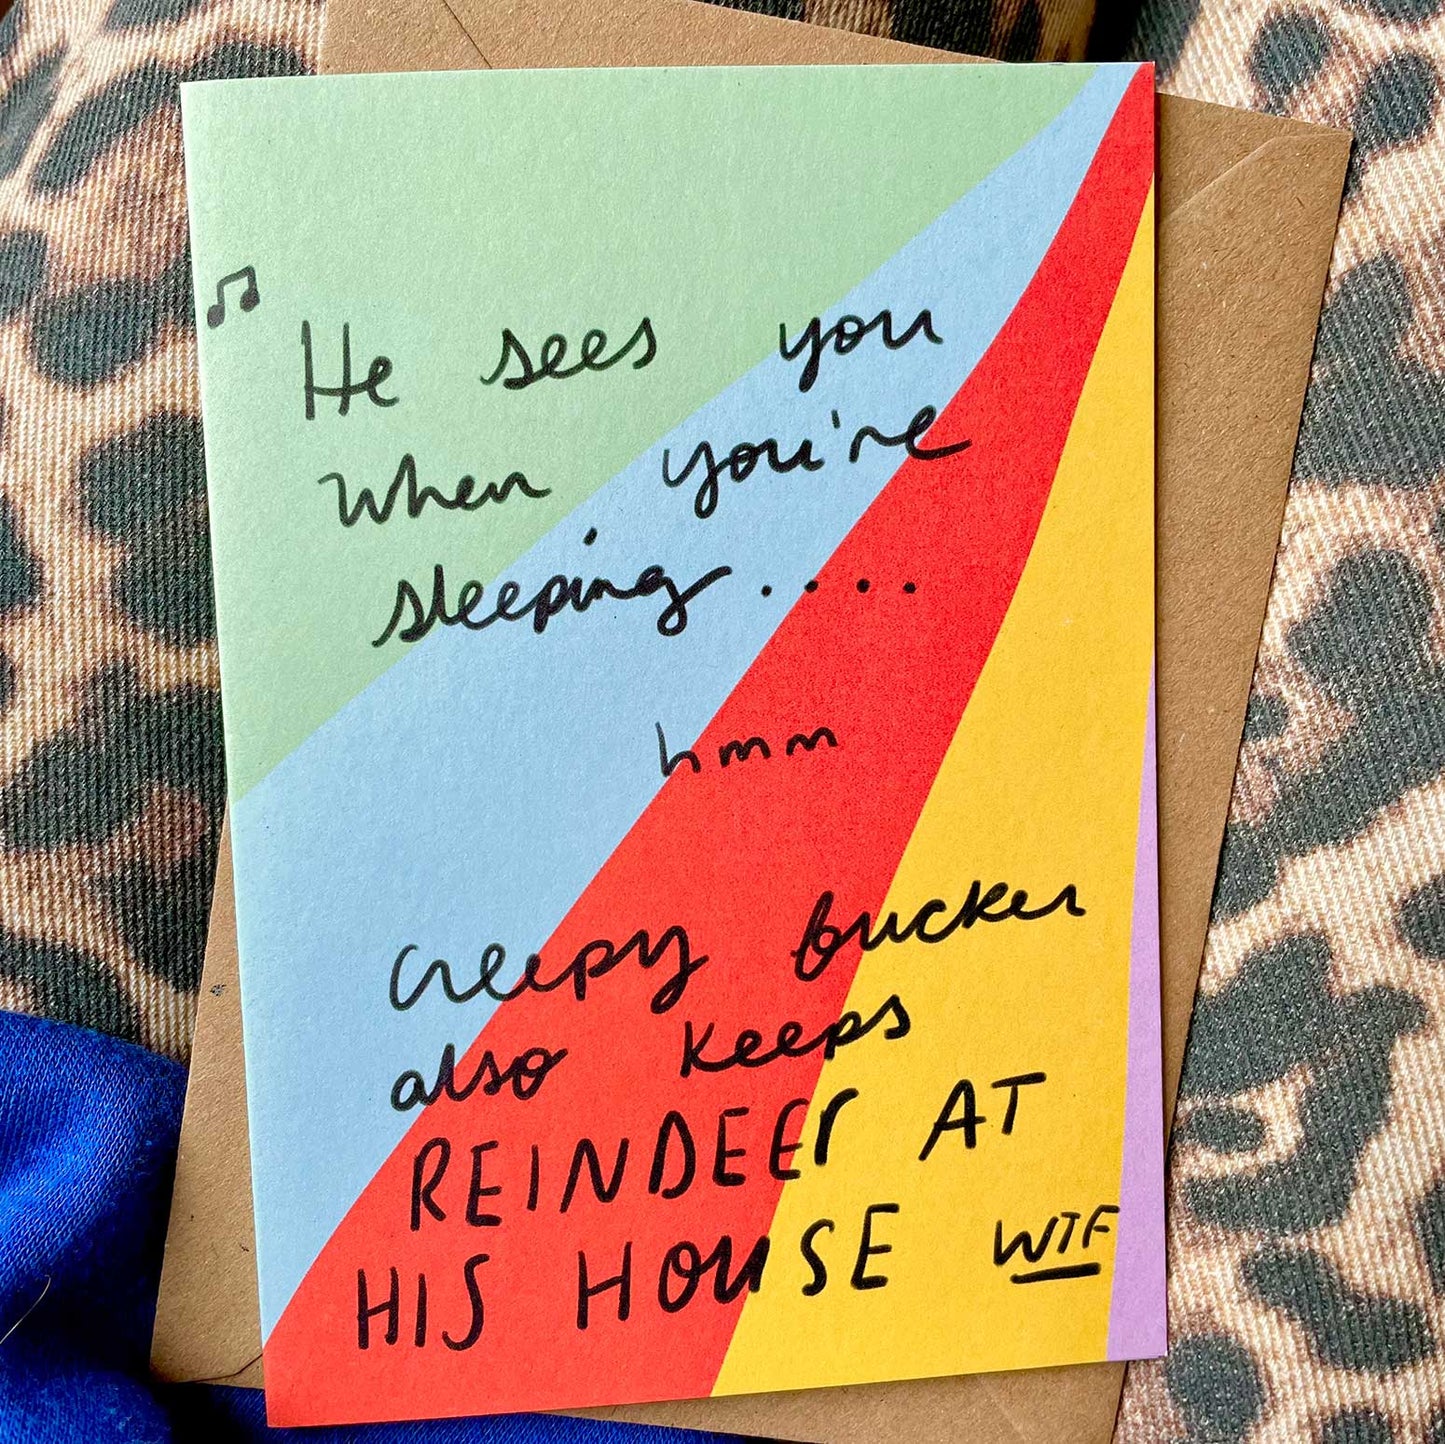 He sees you
when you're
sleeping....
hmm
Creepy bucker
also keeps
REINDEEr AT
HIS HOUSE WTF